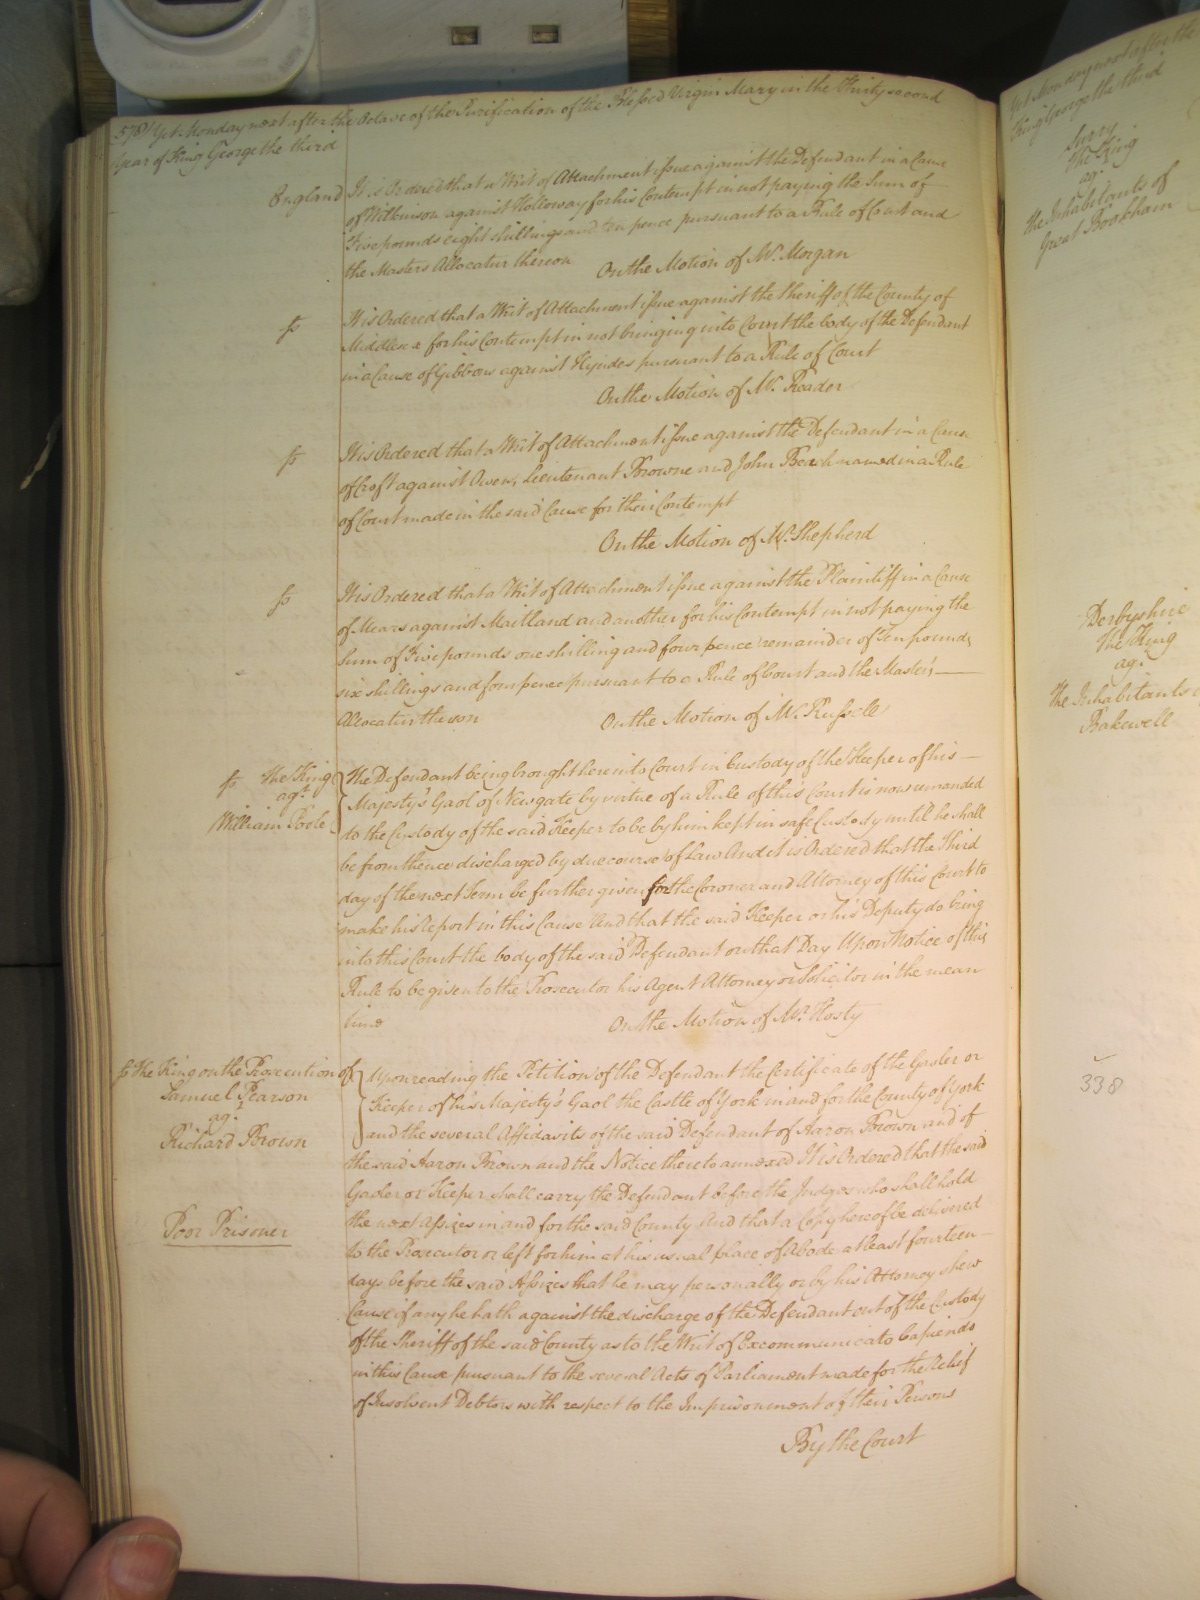 578/ Yet Monday next after the Octave of the Purification of the Blessed Virgin Mary in the Thirty second
Year of King George the third
England It is Ordered that a Writ of Attachment issue against the Defendant in a Cause
of Wilkinson against Holloway for his Contempt in not paying the Sum of
Five pounds eight shillings and ten pence pursuant to a Rule of Court and
the Masters Allocatur thereon
On the Motion of Mr. Morgan
ss It is Ordered that a Writ of Attachment issue against the Sheriff of the County of
Middlesex for his Contempt in not bringing into Court the body of the Defendant
in a Cause of Gibbon against Hyndes pursuant to a Rule of Court
On the Motion of Mr. Reader
ss It is Ordered that a Writ of Attachment issue against the Defendant in a Cause
of Croft against Owen, Lieutenant Browne and John Beach named in a Rule
of Court made in the said Cause for their Contempt
On the Motion of Mr. Shepherd
ss It is Ordered that a Writ of Attachment issue against the Plaintiff in a Cause
of Mears against Maitland and another for his Contempt in not paying the
Sum of Five pounds one shilling and four pence remainder of Ten pounds
six shillings and four pence pursuant to a Rule of Court and the Masters
Allocatur thereon
On the Motion of Mr. Russell
ss The King
agt.
William Poole
The Defendant being brought here into Court in Custody of the Keeper of his
Majesty's Gaol of Newgate by virtue of a Rule of this Court is now remanded
to the Custody of the said Keeper to be by him kept in safe Custody until he shall
be from thence discharged by due course of Law And it is Ordered that the Third
day of the next Term be further given for the Coroner and Attorney of this Court to
make his Report in this Cause And that the said Keeper or his Deputy do bring
into this Court the body of the said Defendant on that Day Upon Notice of this
Rule to be given to the Prosecutor his Agent Attorney or Solicitor in the mean
time
On the Motion of Mr. Hosty
ss The King on the Prosecution of
Samuel Pearson
agt.
Richard Brown
Poor Prisoner
Upon reading the Petition of the Defendant the Certificate of the Gaoler or
Keeper of his Majesty's Gaol the Castle of York in and for the County of York
and the several Affidavits of the said Defendant of Aaron Brown and of
the said Aaron Brown and the Notice thereto annexed It is Ordered that the said
Gaoler or Keeper shall carry the Defendant before the Judges who shall hold
the next Assizes in and for the said County And that a Copy hereof be delivered
to the Prosecutor or left for him at his usual place of Abode at least fourteen
days before the said Assizes that he may personally or by his Attorney shew
Cause if any he hath against the discharge of the Defendant out of the Custody
of the Sheriff of the said County as to the Writ of Excommunicato Capiendo
in this Cause pursuant to the several Acts of Parliament made for the Relief
of Insolvent Debtors with respect to the Imprisonment of their Persons
By the Court
Yet Monday next after the
King George the third
Surry
The King
agt.
the Inhabitants of
Great Bookham
Derbyshire
The King
agt.
the Inhabitants
Bakewell
338